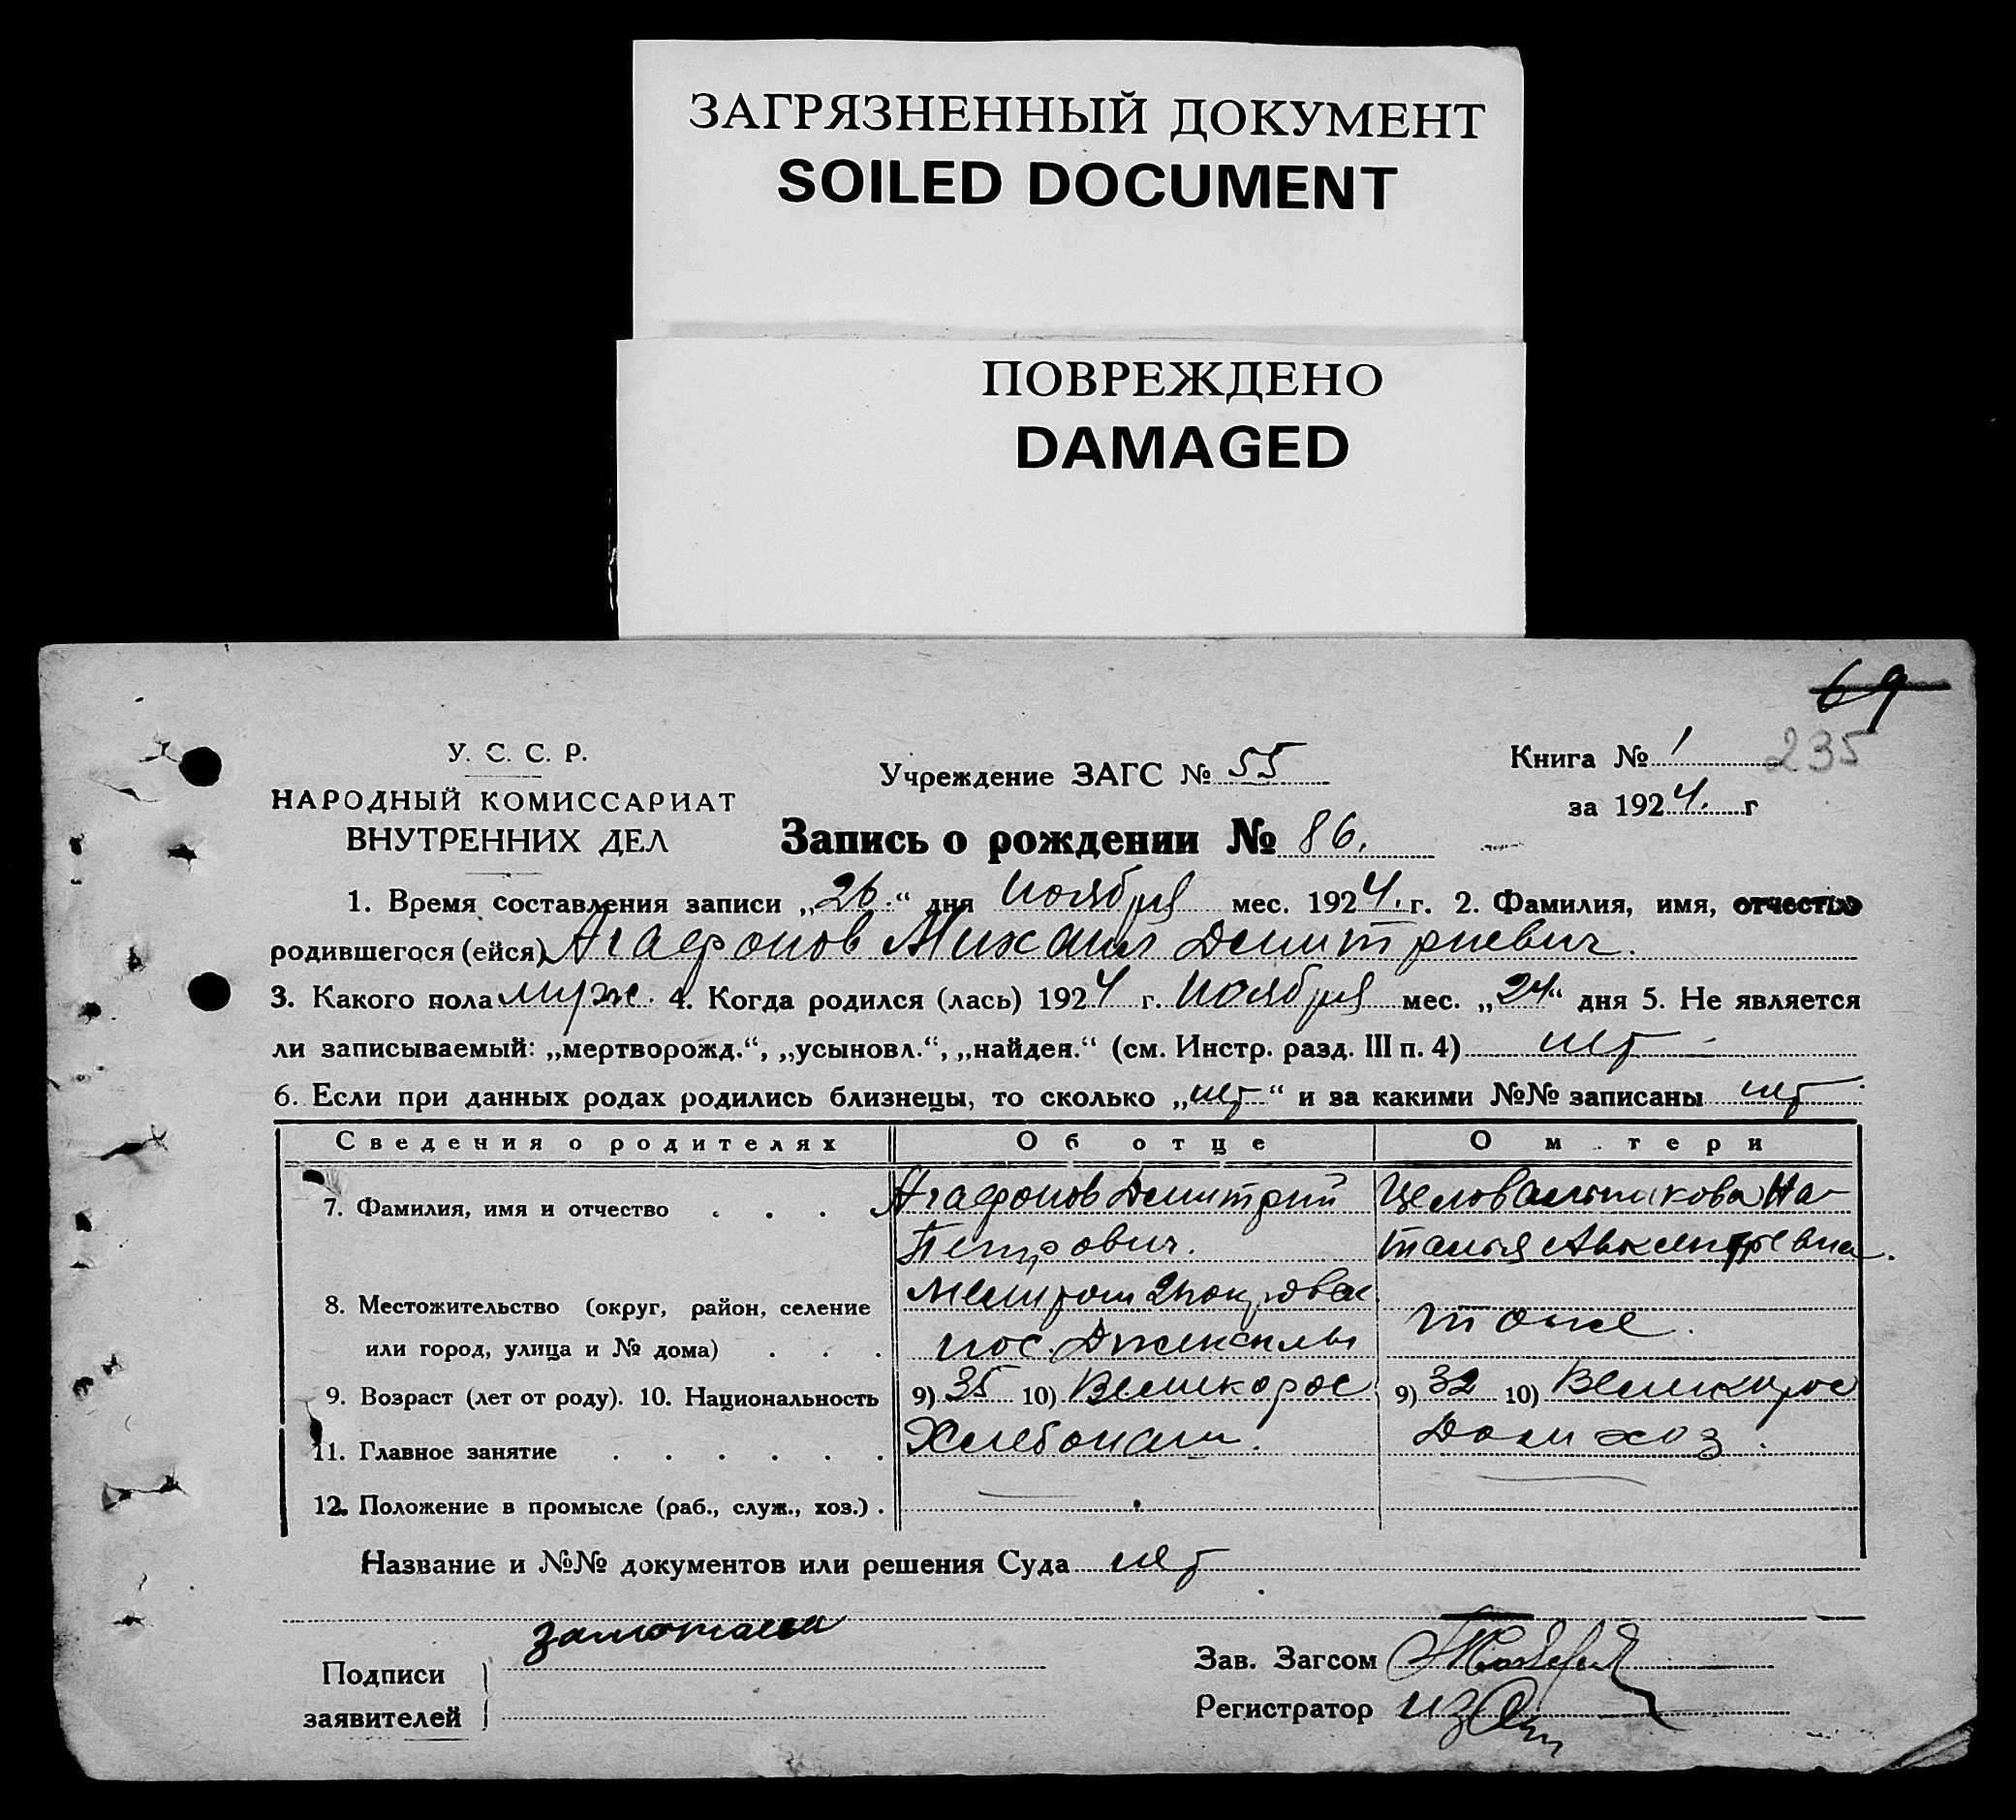 ЗАГРЯЗНЕННЫЙ ДОКУМЕНТ
SOILED DOCUMENT
ПОВРЕЖДЕНО
DAMAGED
69
235
У. С. С. Р.
НАРОДНЫЙ КОМИССАРИАТ
ВНУТРЕННИХ ДЕЛ
Учреждение ЗАГС № 55
Книга № 1
за 1924. г
Запись о рождении № 86.
1. Время составления записи „26.“ дня Ноября мес. 1924. г. 2. Фамилия, имя, отчество
родившегося (ейся) Агафонов Михаил Дмитриевич.
3. Какого пола муж. 4. Когда родился (лась) 1924 г. Ноября мес. „24“ дня 5. Не является
ли записываемый: „мертворожд.“, „усыновл.“, „найден.“ (см. Инстр. разд. III п. 4) нет
6. Если при данных родах родились близнецы, то сколько „нет“ и за какими №№ записаны нет
Сведения о родителях Об отце О м тери
7. Фамилия, имя и отчество . . . Агафонов Дмитрий Целовальникова На-
Петрович. талья
8. Местожительство (округ, район, селение
или город, улица и № дома) . . . пос. тоже.
9. Возраст (лет от роду). 10. Национальность 9) 35 10) Великорос 9) 32 10) Великорос
11. Главное занятие . . . . . . Хлебопаш. Домхоз.
12. Положение в промысле (раб., служ., хоз.) .
Название и №№ документов или решения Суда нет
Подписи
заявителей
Зав. Загсом
Регистратор